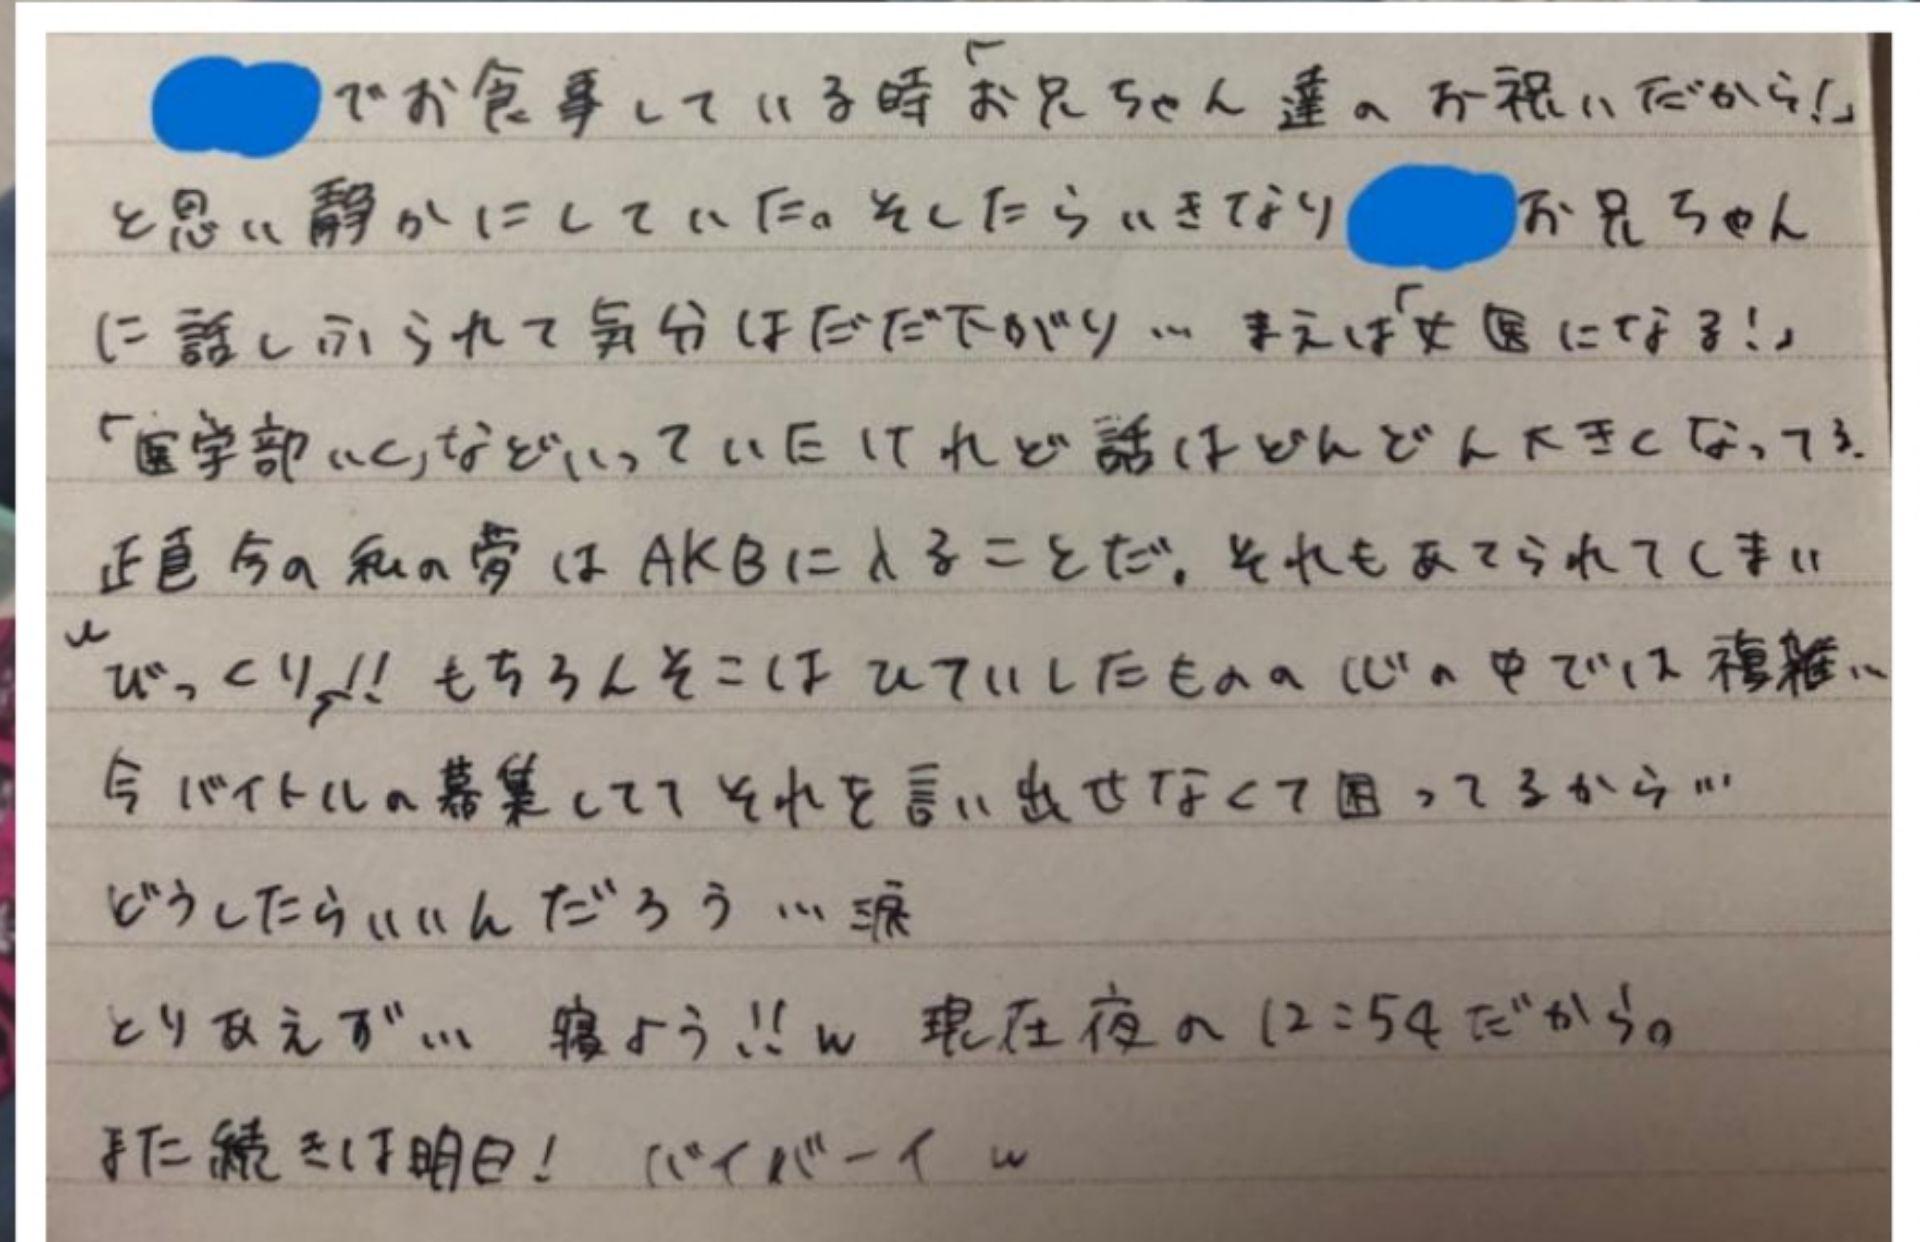 でお食事している時「お兄ちゃん達のお祝いだから!」
と思い静かにしていた。そしたらいきなりお兄ちゃん
に話しふられて気分はだだ下がり… まえは「女医になる!」
「医学部いく」などいっていたけれど話はどんどん大きくなってる.
正直今の私の夢はAKBに入ることだ。それもあてられてしまい
びっくり!! もちろんそこはひていしたものの心の中では複雑…
今バイトルの募集しててそれを言い出せなくて困ってるから…
どうしたらいいんだろう…涙
とりあえず… 寝よう!!w 現在夜の12:54だから。
また続きは明日! バイバーイw